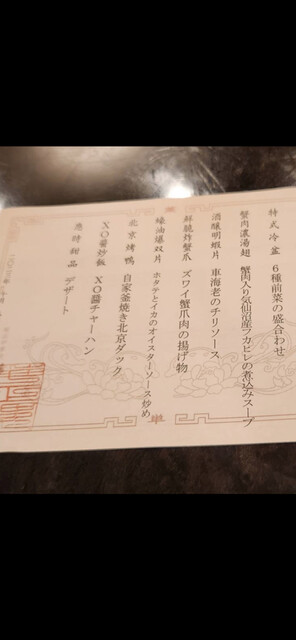 特式冷盆 6種前菜の盛合わせ
蟹肉濃湯翅 蟹肉入り気仙沼産フカヒレの煮込みスープ
酒醸明蝦片 車海老のチリソース
鮮脆炸蟹爪 ズワイ蟹爪肉の揚げ物
蠔油爆双片 ホタテとイカのオイスターソース炒め
北京烤鴨 自家釜焼き北京ダック
XO醤炒飯 XO醤チャーハン
應時甜品 デザート
菜
単